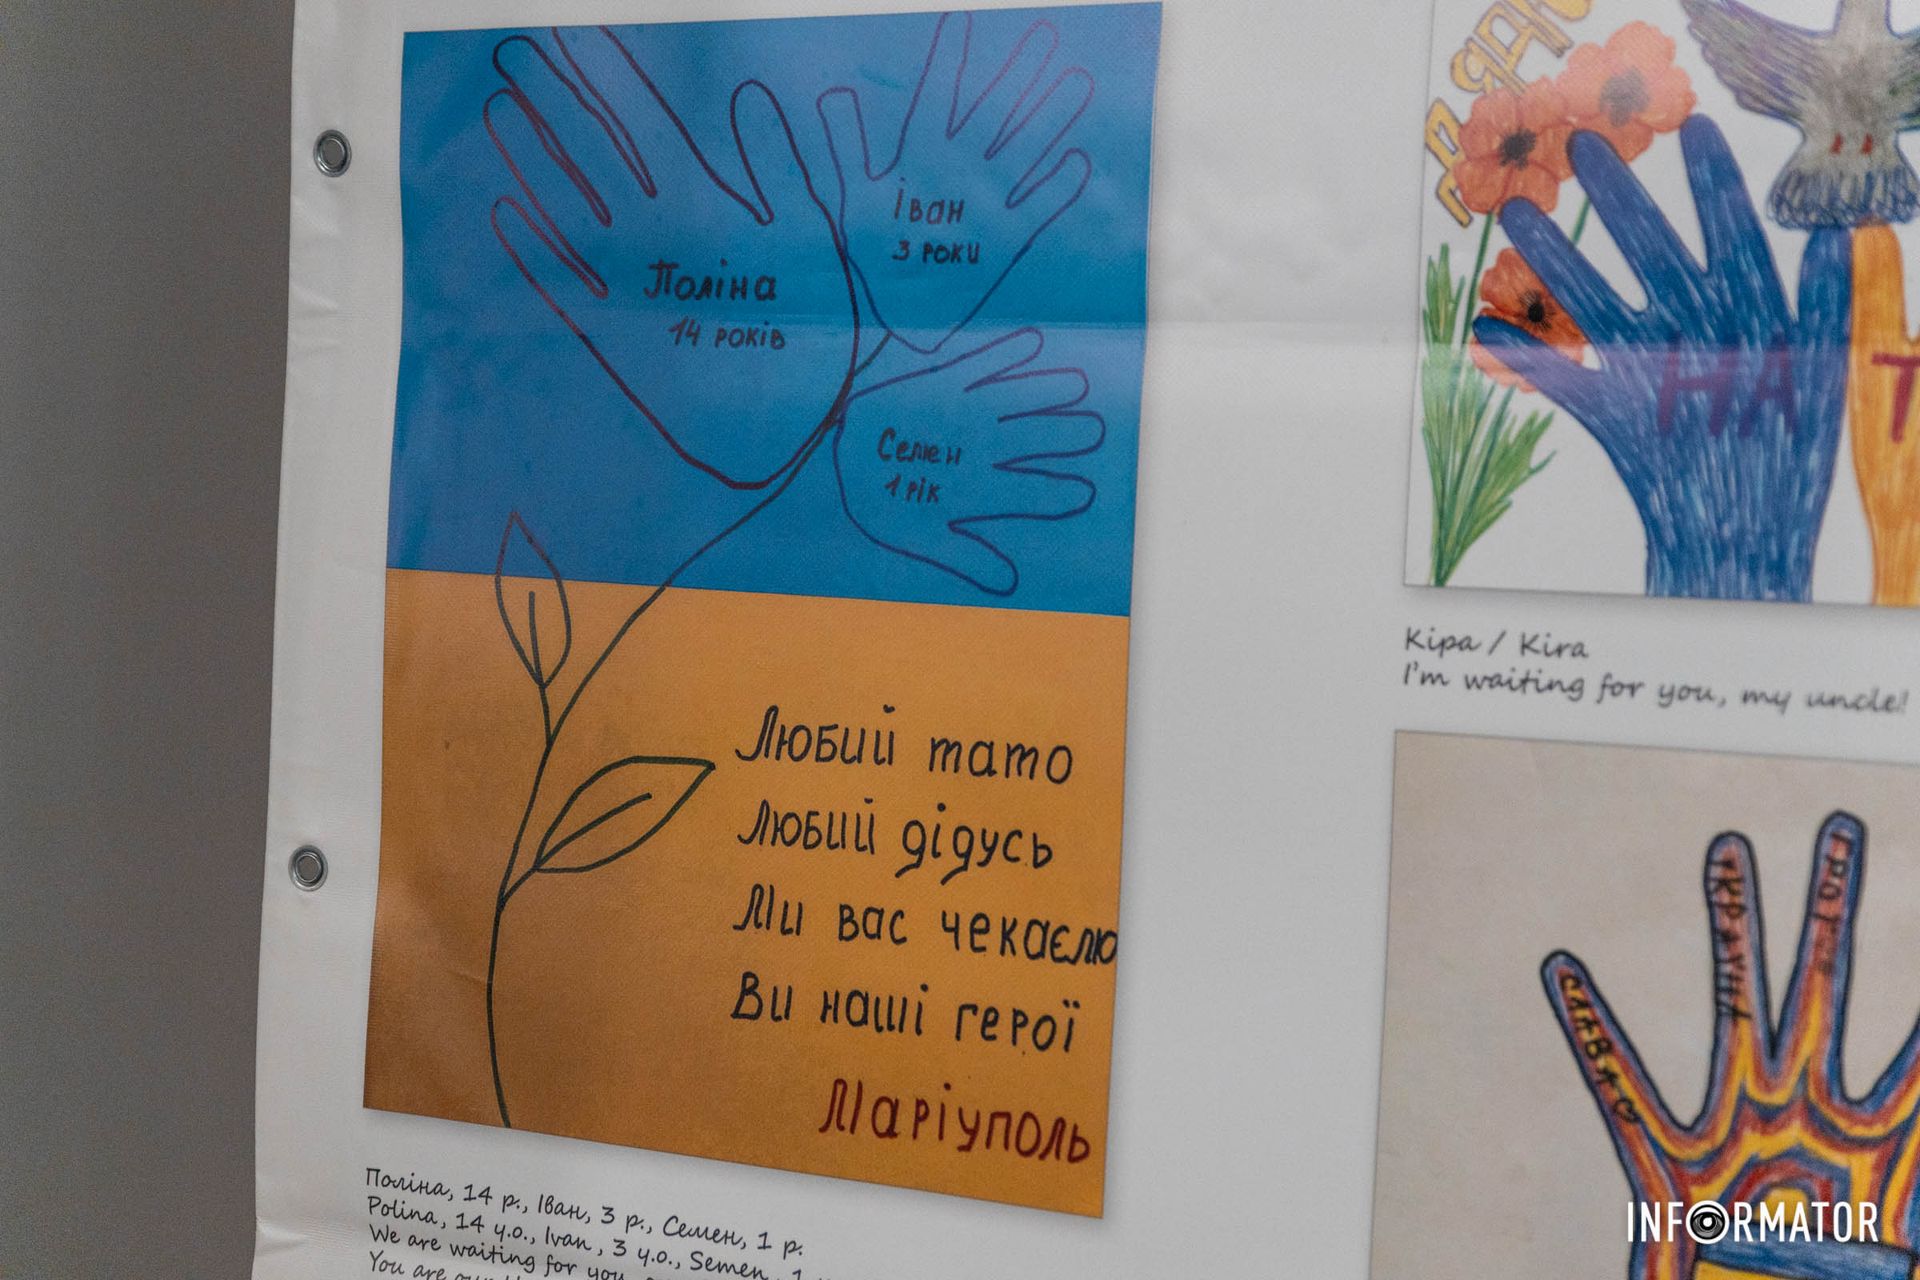 Поліна
14 років
Іван
3 роки
Семен
1 рік
Любий тато
Любий дідусь
Ми вас чекаємо
Ви наші герої
Маріуполь
Поліна, 14 р., Іван, 3 р., Семен, 1 р.
Polina, 14 y.o., Ivan, 3 y.o., Semen, 1
We are waiting for you,
You are our
НА Т
Кіра / Kira
I'm waiting for you, my uncle!
СЛАВА
INFORMATOR